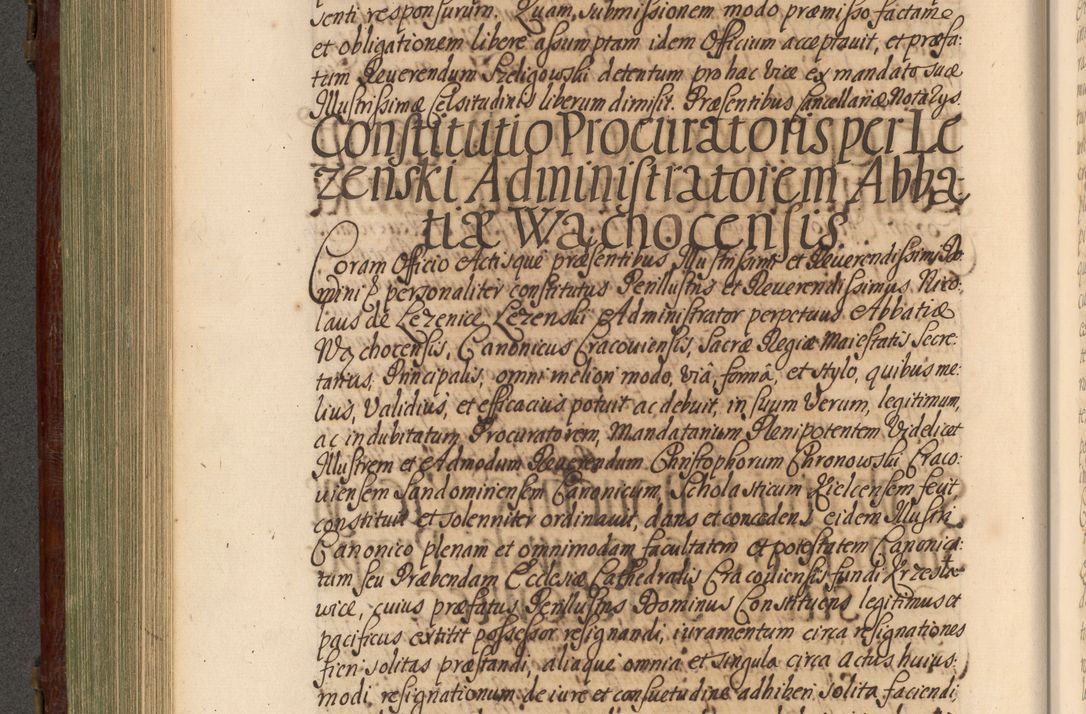 senti responsurum. Quam, submissionem modo præmisso factame
et obligationem libere assumptam idem Officium acceptavit, et præfa:
tum Reverendum Szeligowski detentum pro hac vice ex mandato suæ
Illustrissimæ Celsitudinis liberum dimisit. Præsentibus Cancellariæ Notarys.
Constitutio Procuratoris per Le
zenski Administratorem Abba
tiæ Wąchocensis
Coram Officio Actisque præsentibus Illustrissimi et Reverendissimi Do
mini personaliter constitutus Perillustris et Reverendissimus Nico:
laus de Lezenice Lezenski Administrator perpetuus Abbatiæ
Wąchocensis, Canonicus Cracoviensis, Sacræ Regiæ Maiestatis Secre:
tarius Principalis, omni meliori modo, viâ, formâ, et stylo, quibus me:
lius, validius, et efficacius potuit ac debuit, in suum verum, legitimum,
ac indubitatum Procuratorem, Mandatarium Plenipotentem videlicet
Illustrem et Admodum Reverendum Christophorum Chronowski Craco:
viensem Sandomiriensem Canonicum, Scholasticum Kielcensem fecit
constituit et solenniter ordinavit, dans et concedens eidem Illustri
Canonico plenam et omnimodam facultatem et potestatem Canonica:
tum seu Præbendam Ecclesiæ Cathedralis Cracoviensis fundi Krzesła
vice, cuius præfatus Perillustris Dominus Constituens legitimus et
pacificus extitit possessor resignandi, iuramentum circa resignationes
fieri solitas præstandi, aliaque omnia et singula circa actus huius:
modi resignationum de iure et consuetudine adhiberi solita faciendi